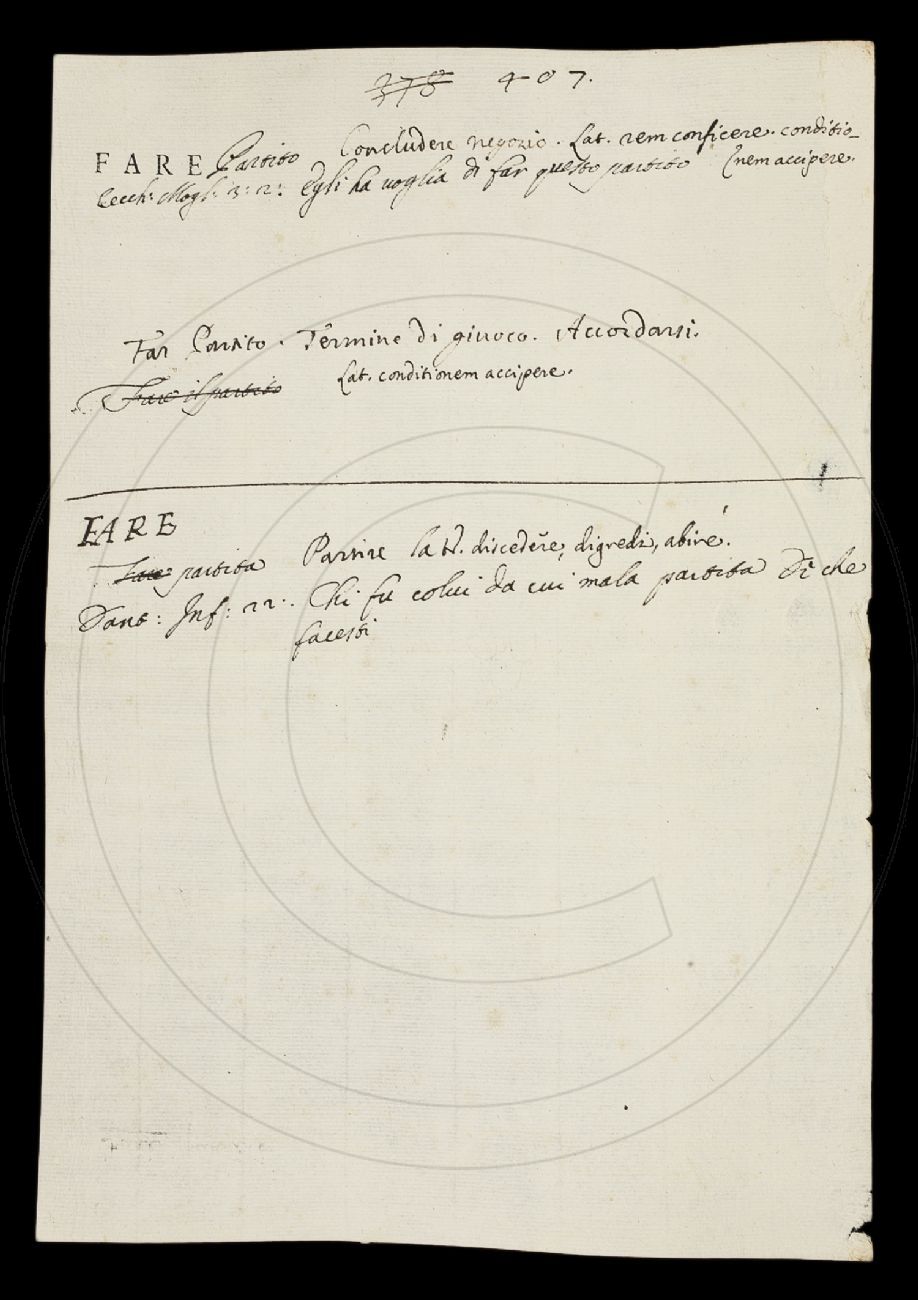 378 407.
FARE Partito Concludere negozio. Lat. rem conficere. conditio-
Cecch: Mogl: 3: 2: Egli ha uoglia di far questo partito nem accipere.
Far Partito. Termine di giuoco. Accordarsi.
Fare il partito Lat. conditionem accipere.
FARE
Fare partita Partire lat. discedere, digredi, abire.
Dant: Inf: 22: Chi fu colui da cui mala partita Di che
facesti